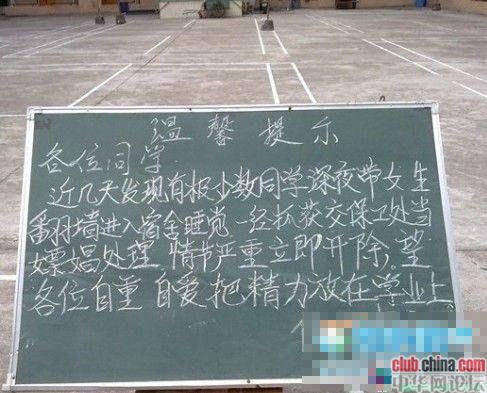 温馨提示
各位同学
近几天发现有极少数同学深夜带女生
翻墙进入宿舍睡觉 一经抓获交保卫处当
嫖娼处理 情节严重立即开除。望
各位自重 自爱 把精力放在学业上
club.china.com
中华网论坛